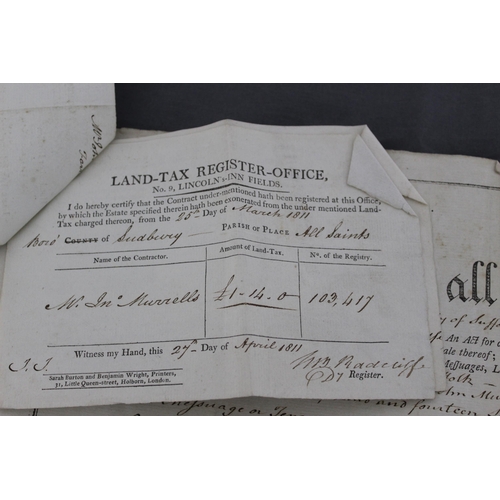 LAND-TAX REGISTER-OFFICE,
No. 9, LINCOLN's-INN FIELDS.
I do hereby certify that the Contract under-mentioned hath been registered at this Office,
by which the Estate specified therein hath been exonerated from the under mentioned Land-
Tax charged thereon, from the 25th Day of March 1811
Boro' COUNTY of Sudbury PARISH or PLACE All Saints
Name of the Contractor. Amount of Land-Tax. No. of the Registry.
Mr. Jno. Murrells £1-14-0 103,417
Witness my Hand, this 27th Day of April 1811
J. J.
Dy Register.
Sarah Burton and Benjamin Wright, Printers,
31, Little Queen-street, Holborn, London.
all
of Suff
An Act for
ale thereof;
Messuages, L
folk
and fourteen